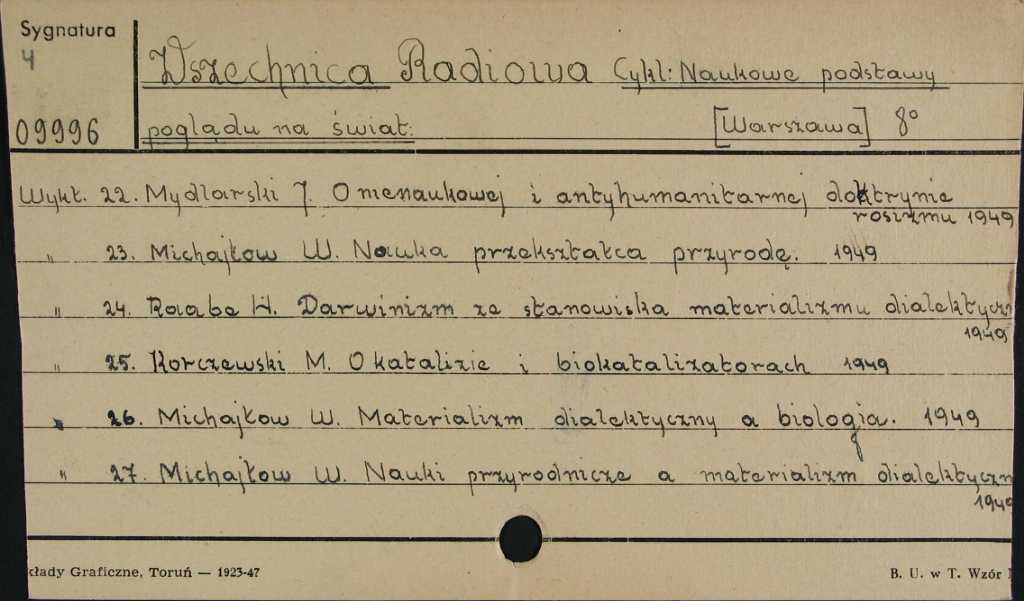 Sygnatura
4
09996
Wszechnica Radiowa Cykl: Naukowe podstawy
poglądu na świat. [Warszawa] 8°
Wykł. 22. Mydlarski J. O nienaukowej i antyhumanitarnej doktrynie
rasizmu 1949
" 23. Michajłow W. Nauka przekształca przyrodę. 1949
" 24. Raabe H. Darwinizm ze stanowiska materializmu dialektyczn
1949
" 25. Korczewski M. O katalizie i biokatalizatorach 1949
" 26. Michajłow W. Materializm dialektyczny a biologia. 1949
" 27. Michajłow W. Nauki przyrodnicze a materializm dialektyczn
1949
kłady Graficzne, Toruń — 1923-47
B. U. w T. Wzór